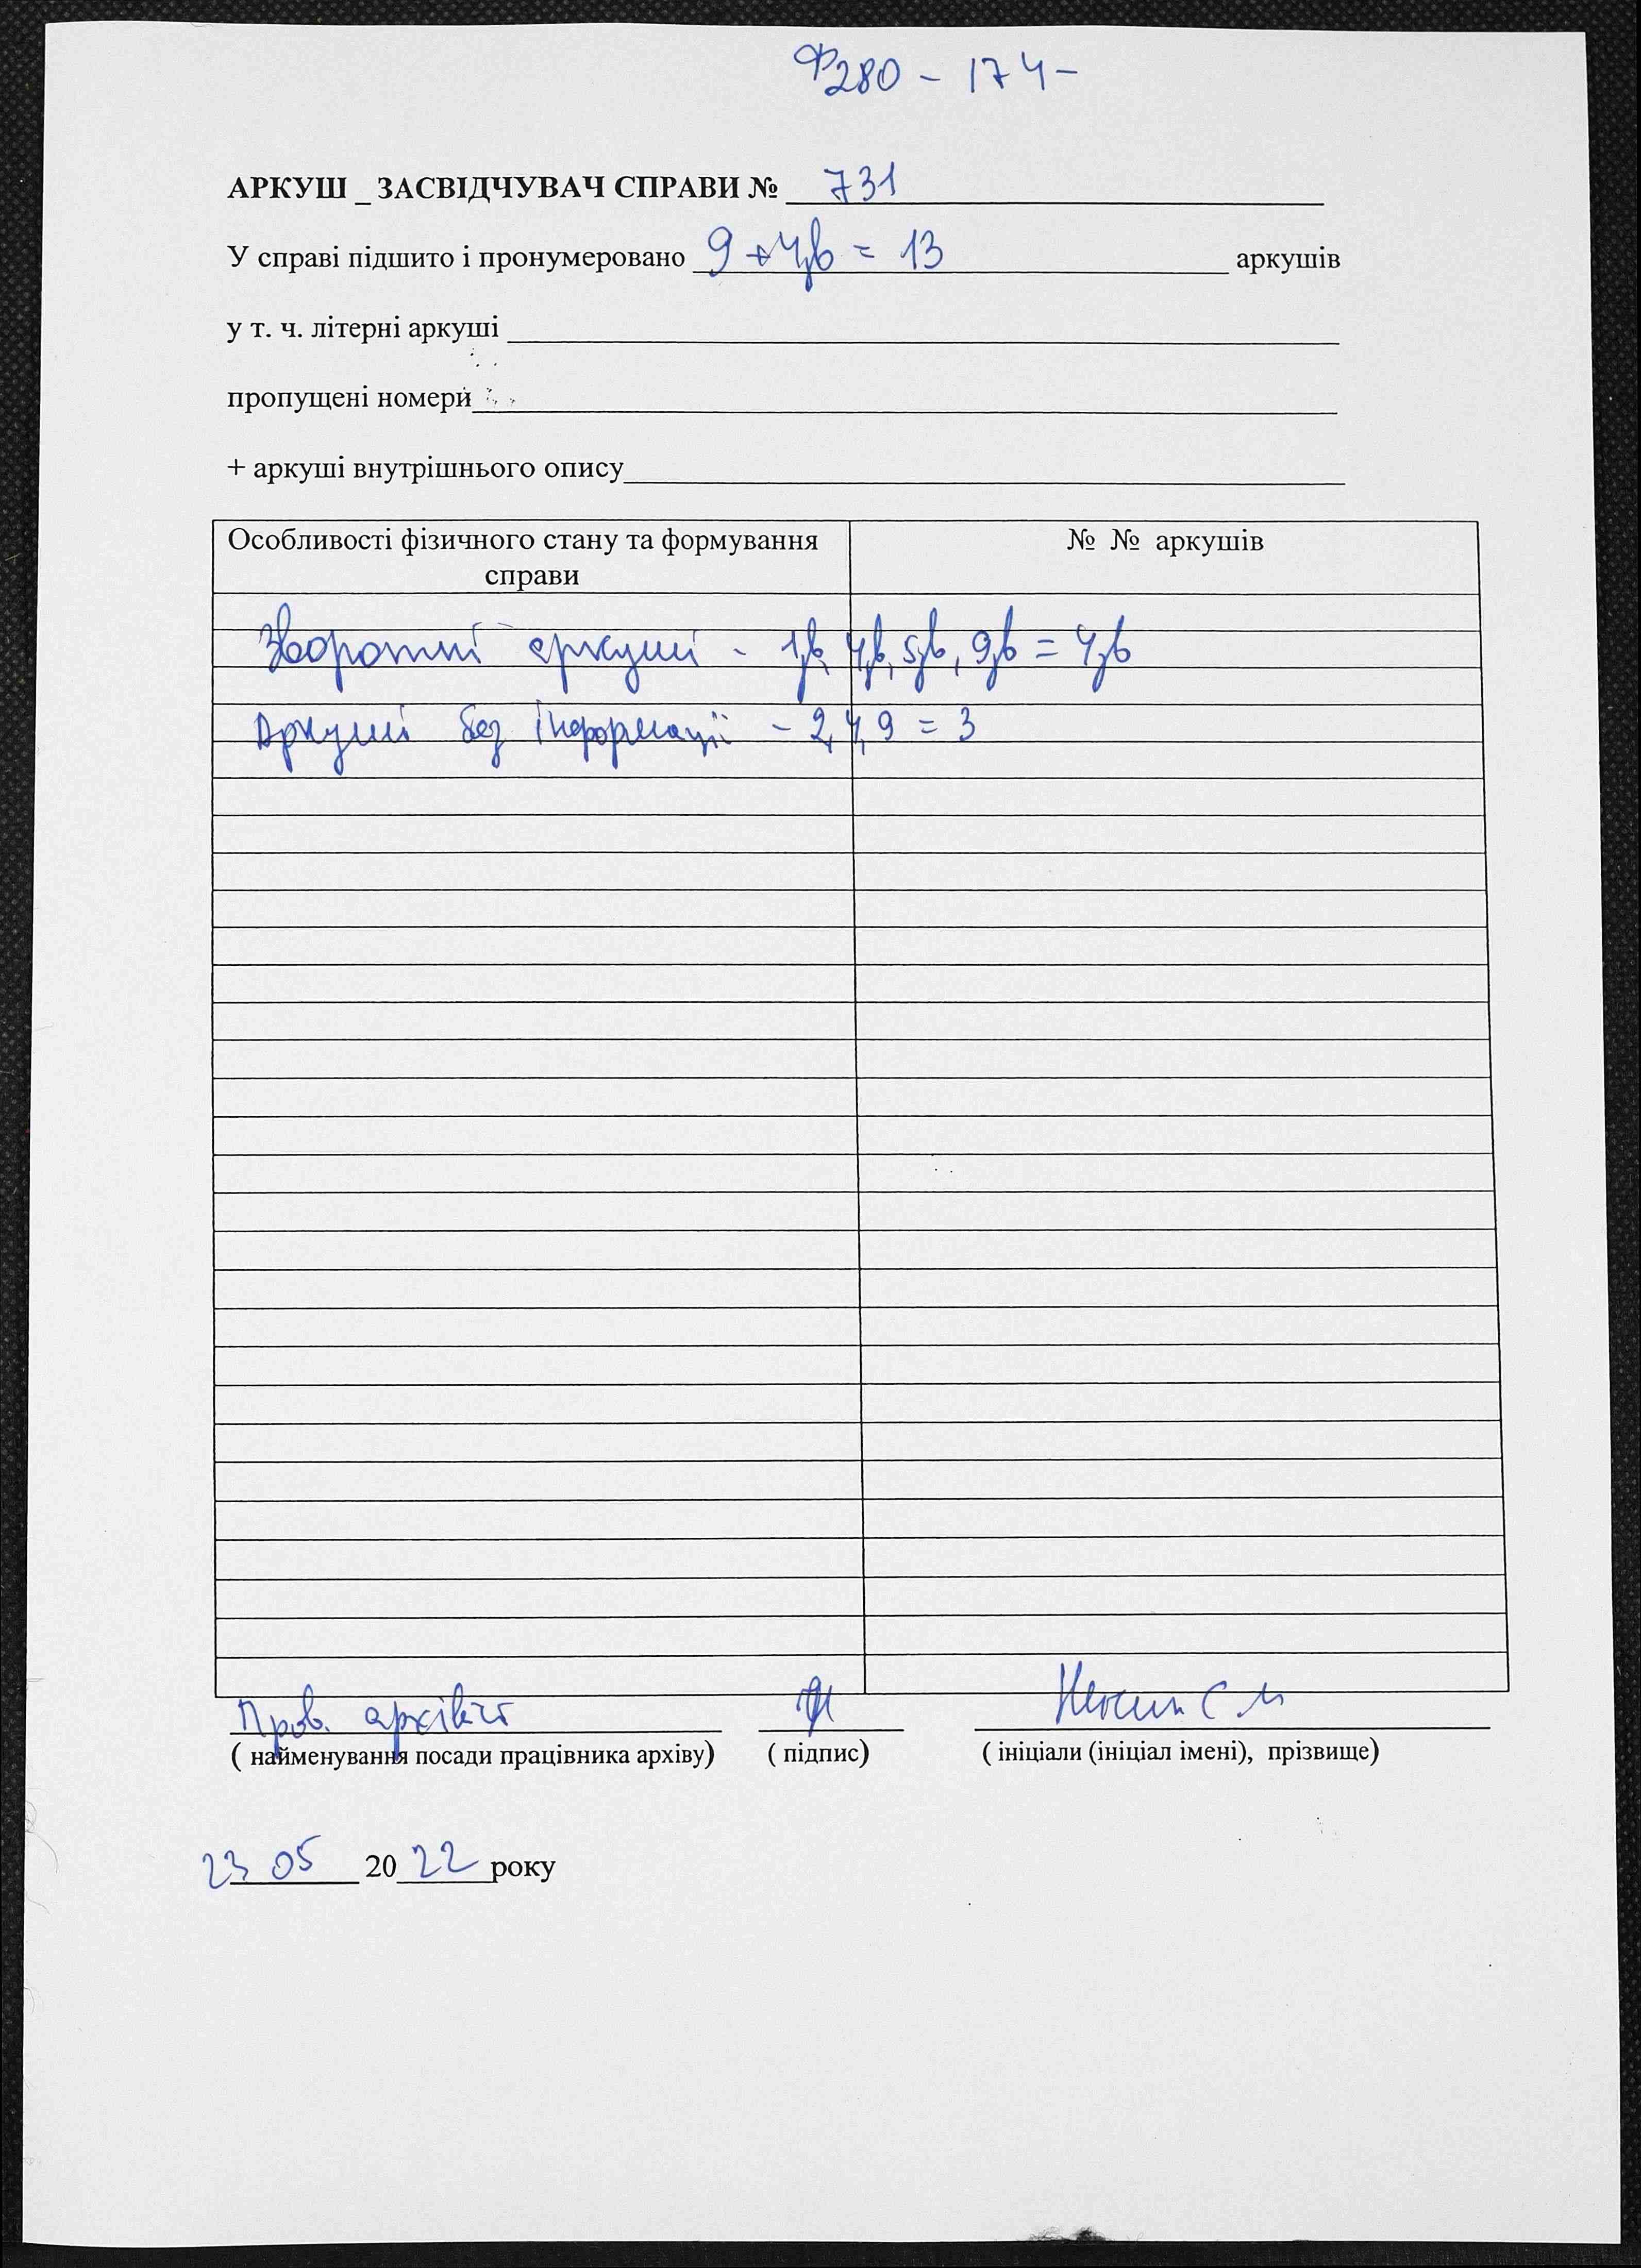 Ф280 - 174-
АРКУШ _ ЗАСВІДЧУВАЧ СПРАВИ № 731
У справі підшито і пронумеровано 9 + 4зв = 13 аркушів
у т. ч. літерні аркуші
пропущені номери
+ аркуші внутрішнього опису
Особливості фізичного стану та формування справи
№ № аркушів
Зворотні аркуші - 1зв, 4зв, 5зв, 9зв = 4зв
Аркуші без інформації - 2, 4, 9 = 3
Пров. архівіст
( найменування посади працівника архіву) ( підпис) ( ініціали (ініціал імені), прізвище)
23 05 2022 року